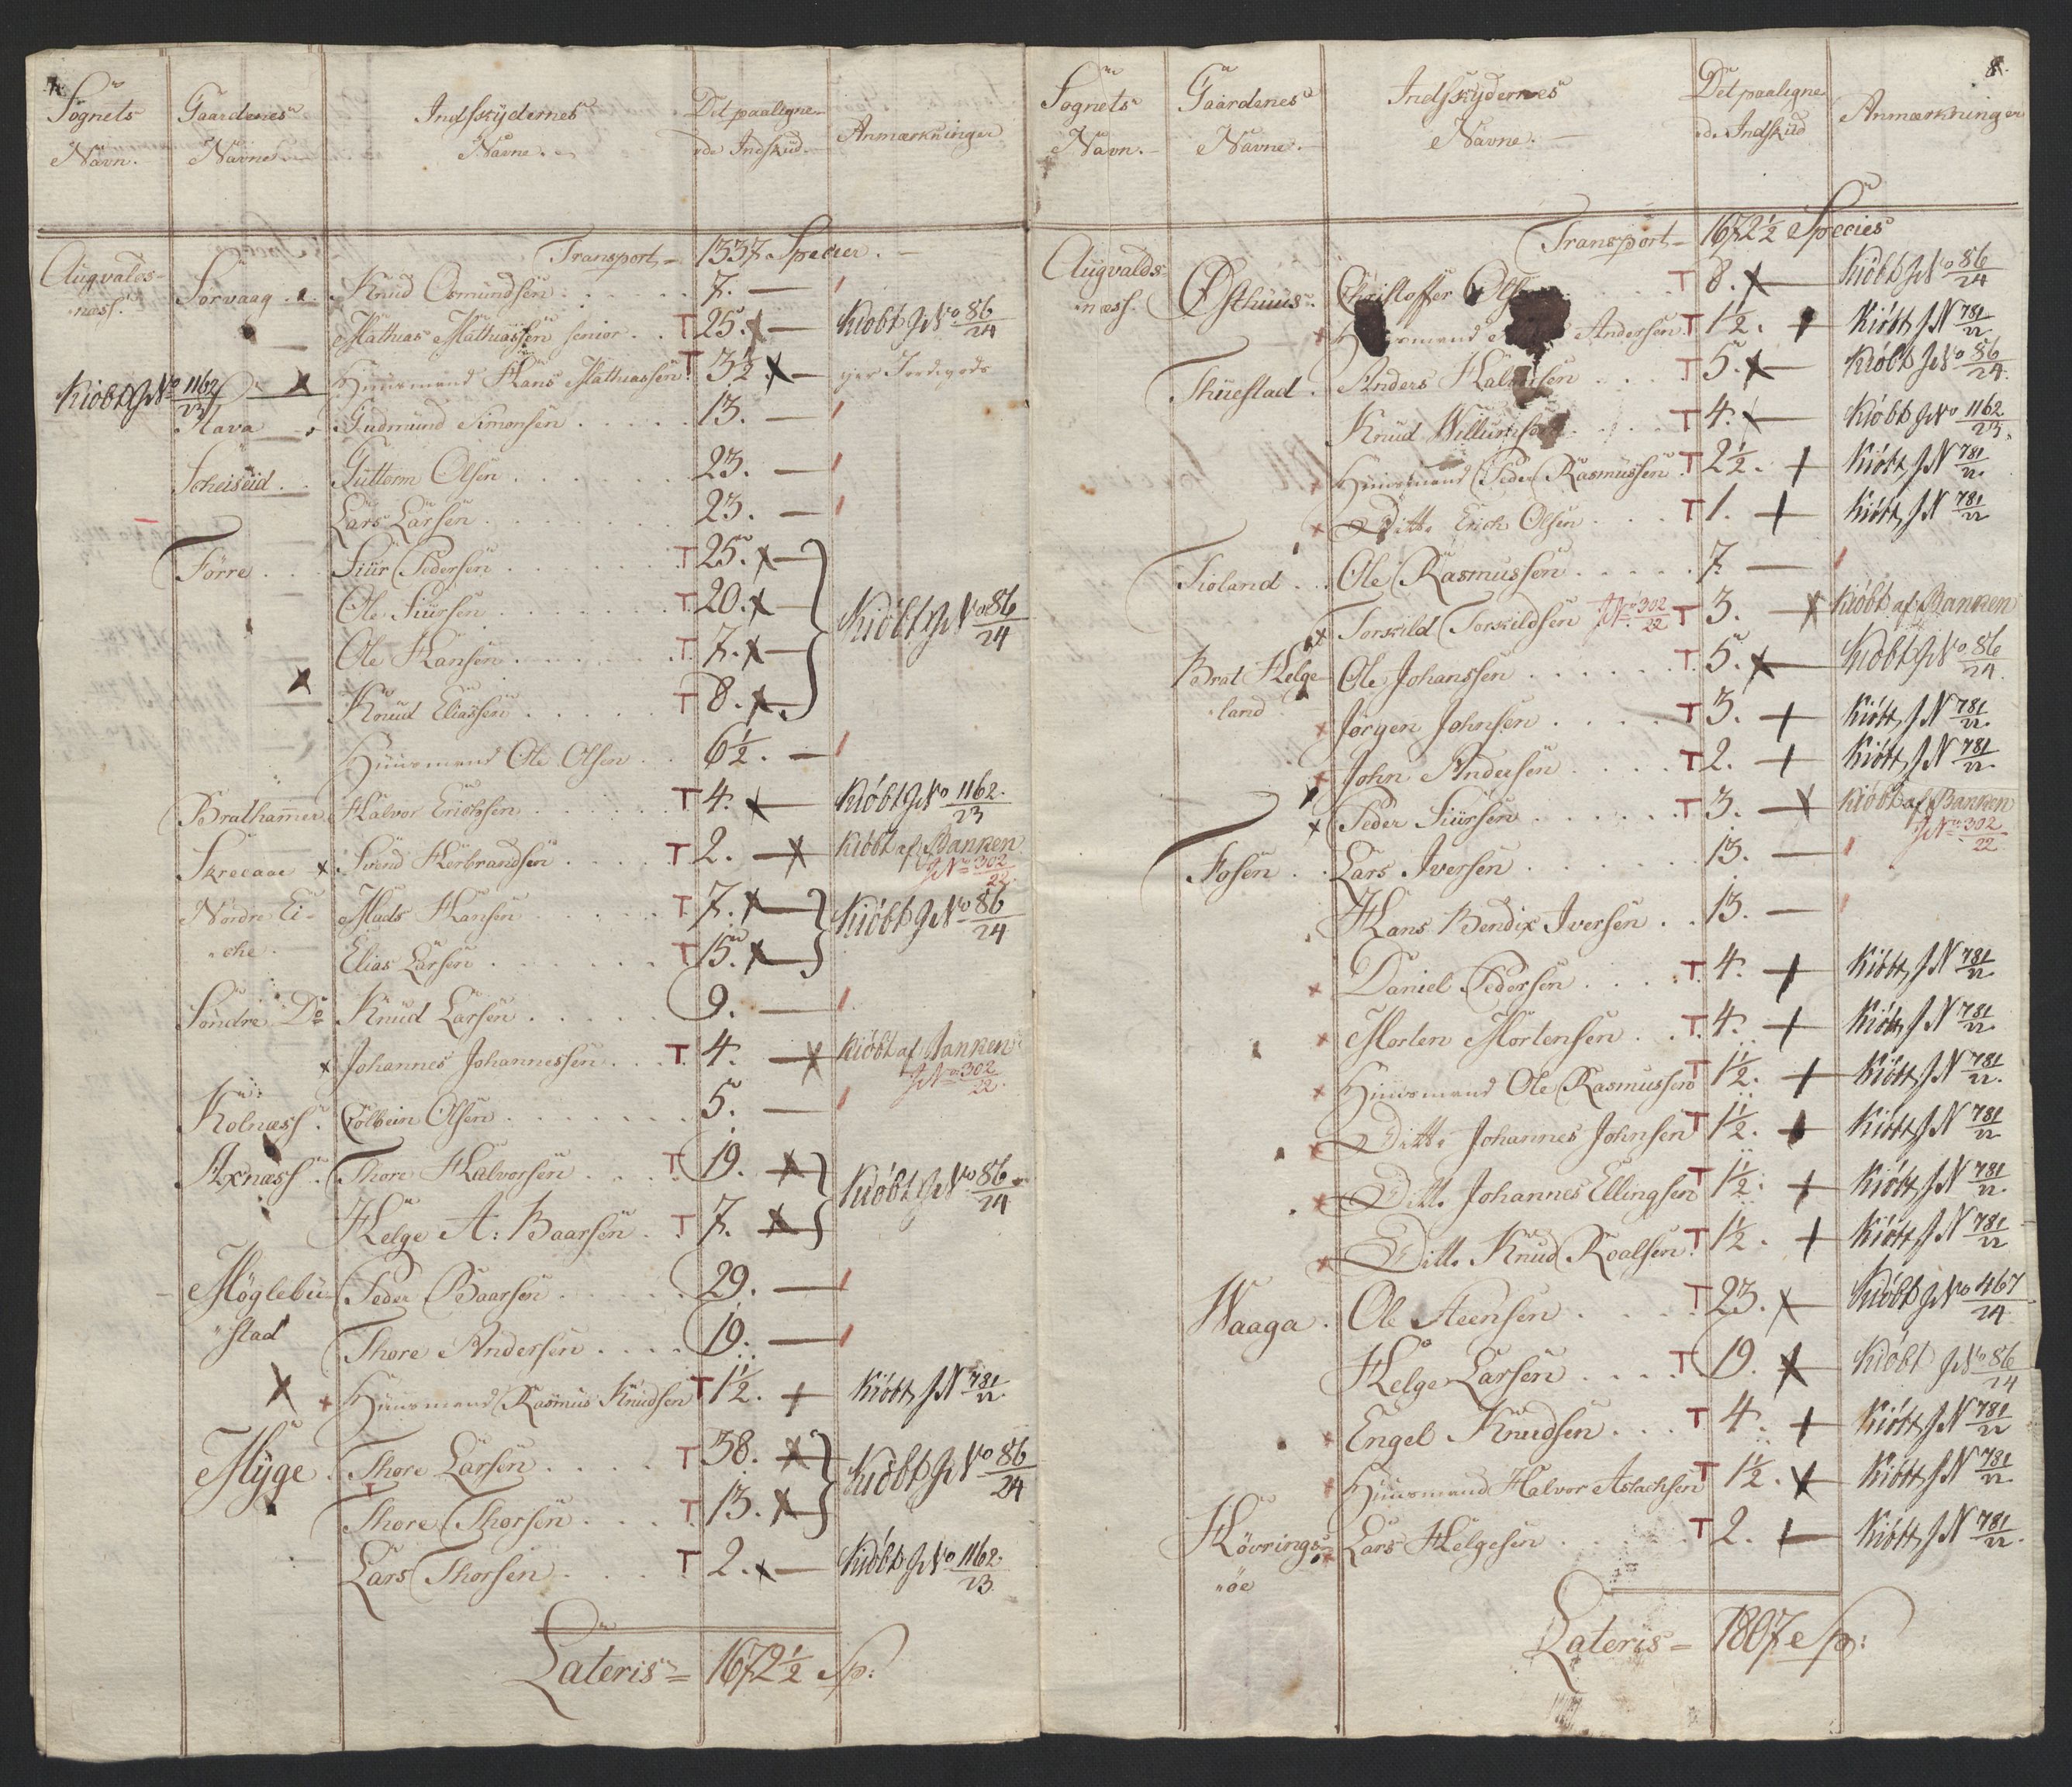 7.
Sognets Navn. Gaardenes Navne. Indskydernes Navne. Det paaligne-de Indskud. Anmærkninger
Transport - 1337 Specier. -
Augvalds-næss. Sorvaag. Knud Osmundsen . . . 7. -
Mathias Mathiassen senior . . T 25. x - Kiøbt J No 86/24
Kiøbt J No 1162/23 x Huusmand Hans Mathiassen T 3½. x - Jordegods
Hava Gudmund Simonsen . . . 13. -
Scheiseid . . Guttorm Olsen . . . 23. -
Lars Larsen . . . 23. -
Førre . . Siur Pedersen . . . T 25. x -
Ole Siursen . . . T 20. x - Kiøbt J No 86/24
Ole Hansen . . . T 7. x -
x Knud Eliassen . . . T 8. x -
Huusmand Ole Olsen . . 6½. -
Brathammer Halvor Erichsen . . . T 4. x - Kiøbt J No 1162/23
Skreeaae x Svend Herbrandsen . . . T 2. - x Kiøbt af Banken J No 302/22.
Nordre Ei- Mads Hansen . . . T 7. x - Kiøbt J No 86/24
"che. Elias Larsen . . . T 15. x -
Søndre Do Knud Larsen . . . 9. -
x Johannes Johannessen . . T 4. - x Kiøbt af Banken J No 302/22.
Kolnæss . Colbein Olsen . . . 5. -
Axnæss . Thore Halvorsen . . . T 19. x - Kiøbt J No 86/24
Helge A: Baarsen . . T 7. x -
Møglebu- Peder Baarsen . . . 29. -
"stad Thore Andersen . . . 19. -
x + Huusmand Rasmus Knudsen T 1½. + Kiøbt J N 781/22
Myge . Thore Larsen . . . T 38. x - Kiøbt J No 86/24
T Thore Thorsen . . . T 13. x -
Lars Thorsen . . . T 2. x - Kiøbt J No 1162/23
Lateris = 1672½ Sp:
8.
Sognets Navn. Gaardenes Navne. Indskydernes Navne. Det paaligne-de Indskud Anmærkninger
Transport - 1672½ Species
Augvalds-næss. Østhuus. Christoffer . . . T 8. x - Kiøbt J No 86/24
+ Andersen T 1½. + Kiøbt J N 781/22
Thuestad . Anders . . . T 5. x - Kiøbt J No 86/24.
Knud . . . T 4. x - Kiøbt J No 1162/23.
+ Huusmand Peder Rasmussen . T 2½. + Kiøbt J N 781/22.
+ Ditto Erich Olsen . . . T 1. + Kiøbt J N 781/22
Tioland . . Ole Rasmussen . . . 7. -
x Torskild Torskildsen J No 302/22 T 3. - x Kiøbt af Banken
Brat Helge- Ole Johanssen . . . T 5. x - Kiøbt J No 86/24.
"land + Jørgen Johnsen . . . T 3. + Kiøbt J N 781/22.
+ John Andersen . . . T 2. + Kiøbt J N 781/22.
x Peder Siursen . . . T 3. - x Kiøbt af Banken J No 302/22.
Fosen . . Lars Iversen . . . 13. -
Hans Bendix Iversen . . 13. -
+ Daniel Pedersen . . . T 4. + Kiøbt J N 781/22
+ Morten Mortensen . . T 4. + Kiøbt J N 781/22
+ Huusmand Ole Rasmussen T 1½. + Kiøbt J N 781/22.
+ Ditto Johannes Johnsen T 1½. + Kiøbt J N 781/22
+ Ditto Johannes Ellingsen T 1½. + Kiøbt J N 781/22.
+ Ditto Knud Roalsen T 1½. + Kiøbt J N 781/22
Waaga . Ole Steensen . . . T 23. x Kiøbt J No 467/24
Helge Larsen . . . T 19. x Kiøbt J No 86/24
+ Engel Knudsen . . . T 4. + Kiøbt J N 781/22
+ Huusmand Halvor Aslachsen T 1½. x Kiøbt J N 781/22.
Høvrings- + Lars Helgesen . . . T 2. + Kiøbt J N 781/22.
"øe
Lateris = 1807 Sp: